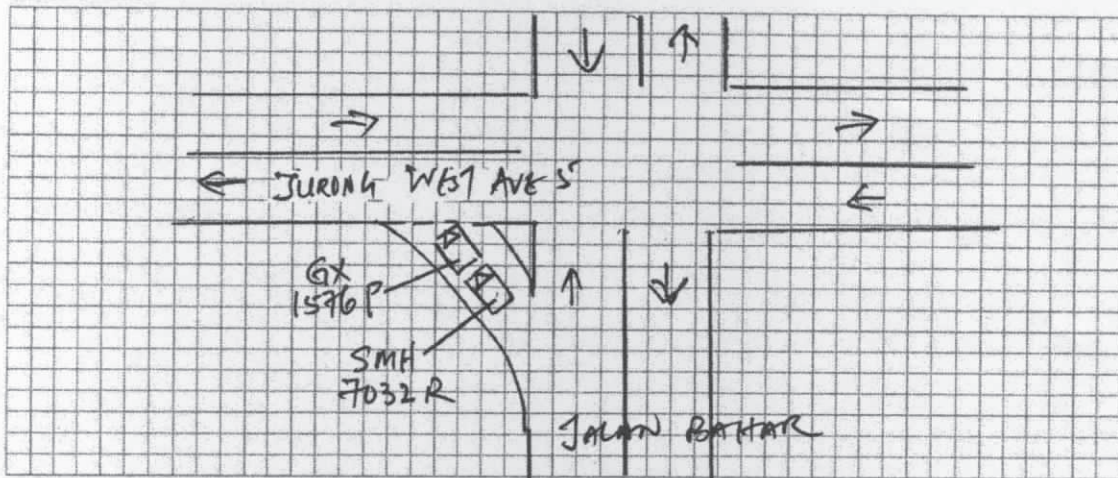 JURONG WEST AVE 5
GX
1576 P
SMH
7032 R
JALAN BAHAR